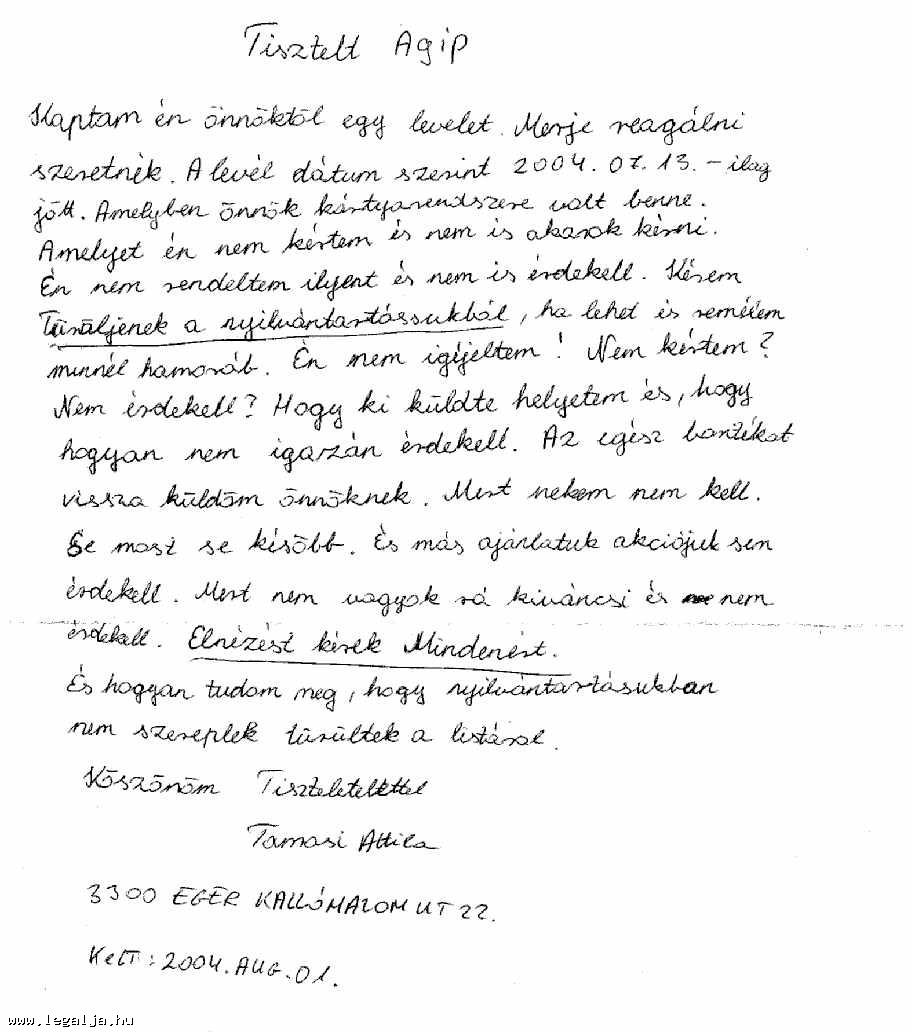 Tisztelt Agip
Kaptam én önnöktöl egy levelet. Merje reagálni
szeretnék. A levél dátum szerint 2004.07.13.-ilag
jött. Amelyben önnök kártyarendszere volt benne.
Amelyet én nem kértem és nem is akarok kérni.
Én nem rendeltem ilyent és nem is érdekell. Kérem
Türüljenek a nyilvántartássukból, ha lehet és remélem
minnél hamoráb. Én nem igéjeltem! Nem kértem?
Nem érdekell? Hogy ki küldte helyetem és, hogy
hogyan nem igarzán érdekell. Az egész
vissza küldöm önnöknek. Mert nekem nem kell.
Se most se késöbb. És más ajánlatuk akciójuk sen
érdekell. Mert nem vagyok rá kiváncsi és nem
érdekell. Elnézést kérek Mindenért.
És hogyan tudom meg, hogy nyilvántartásukban
nem szereplek türültek a listárol.
Köszönöm Tiszteletelettel
Tamasi Attila
3300 EGER KALLÓMALOM UT 22.
Kelt: 2004. AUG. 01.
www.legalja.hu